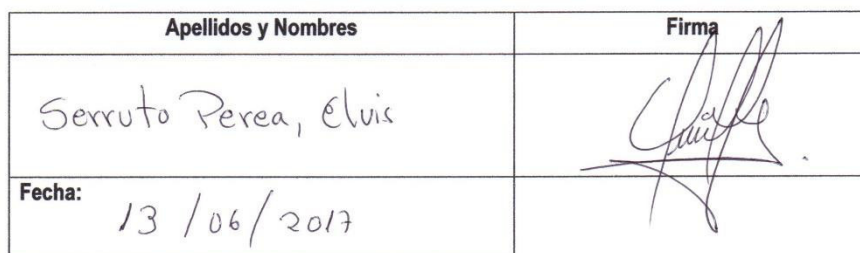 Apellidos y Nombres Firma
Serruto Perea, Elvis
Fecha:
13/06/2017